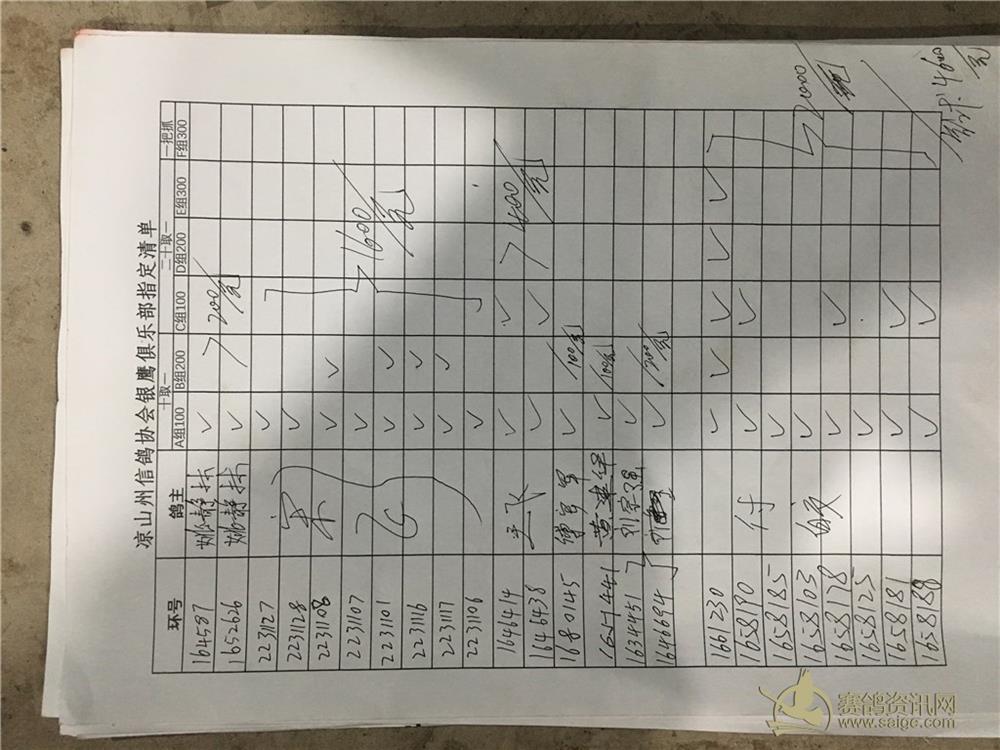 凉山州信鸽协会银鹰俱乐部指定清单
环号 鸽主 十取一 二十取一 一把抓
A组100 B组200 C组100 D组200 E组300 F组300
164587 姚静技 ✓
1652626 姚静技 ✓ >200/元
2231127 ✓
2231128 ✓
2231108 宋 ✓ ✓
2231107 ✓ 1600/元
2231101 ✓ ✓
2231116 ✓ ✓
2231117 ✓ ✓
2231106 ✓
1646414 王飞 ✓ ✓
1646438 ✓ ✓ >400/元
1680145 傅军 ✓ 100/元
1651441 黄建华 ✓ 100/元
1634451 刘宗强 ✓
1646694 ✓ 200/元
1661230 ✓ ✓ ✓ ✓ ✓
1658190 付 ✓ ✓
1658185 ✓
1658103 ✓ 2000/元
1658178 ✓ ✓
1658125 ✓
1658181 ✓ ✓
1658188 ✓ ✓
4600/元
赛鸽资讯网
www.saige.com